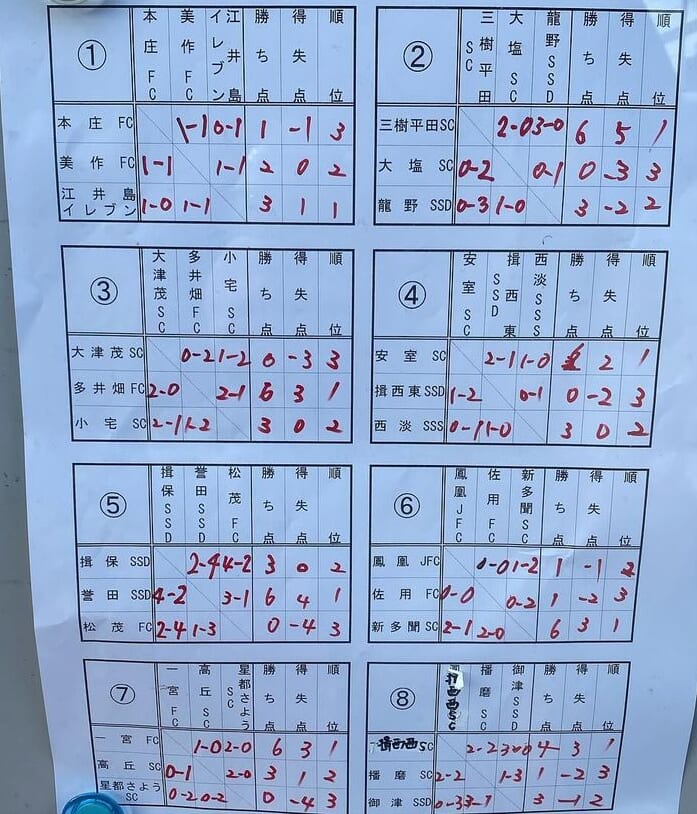 ① 本庄FC 美作FC 江井島イレブン 勝ち点 得失点 順位
本庄 FC 1-1 0-1 1 -1 3
美作 FC 1-1 1-1 2 0 2
江井島イレブン 1-0 1-1 3 1 1
② 三樹平田SC 大塩SC 龍野SSD 勝ち点 得失点 順位
三樹平田SC 2-0 3-0 6 5 1
大塩 SC 0-2 0-1 0 -3 3
龍野 SSD 0-3 1-0 3 -2 2
③ 大津茂SC 多井畑FC 小宅SC 勝ち点 得失点 順位
大津茂SC 0-2 1-2 0 -3 3
多井畑FC 2-0 2-1 6 3 1
小宅 SC 2-1 1-2 3 0 2
④ 安室SC 揖西東SSD 西淡SSS 勝ち点 得失点 順位
安室 SC 2-1 1-0 6 2 1
揖西東SSD 1-2 0-1 0 -2 3
西淡 SSS 0-1 1-0 3 0 2
⑤ 揖保SSD 誉田SSD 松茂FC 勝ち点 得失点 順位
揖保 SSD 2-4 4-2 3 0 2
誉田 SSD 4-2 3-1 6 4 1
松茂 FC 2-4 1-3 0 -4 3
⑥ 鳳凰JFC 佐用FC 新多聞SC 勝ち点 得失点 順位
鳳凰 JFC 0-0 1-2 1 -1 2
佐用 FC 0-0 0-2 1 -2 3
新多聞SC 2-1 2-0 6 3 1
⑦ 一宮FC 高丘SC 星都さようSC 勝ち点 得失点 順位
一宮 FC 1-0 2-0 6 3 1
高丘 SC 0-1 2-0 3 1 2
星都さようSC 0-2 0-2 0 -4 3
⑧ 揖西西SC 播磨SC 御津SSD 勝ち点 得失点 順位
揖西西SC 2-2 3-0 4 3 1
播磨 SC 2-2 1-3 1 -2 3
御津 SSD 0-3 3-1 3 -1 2